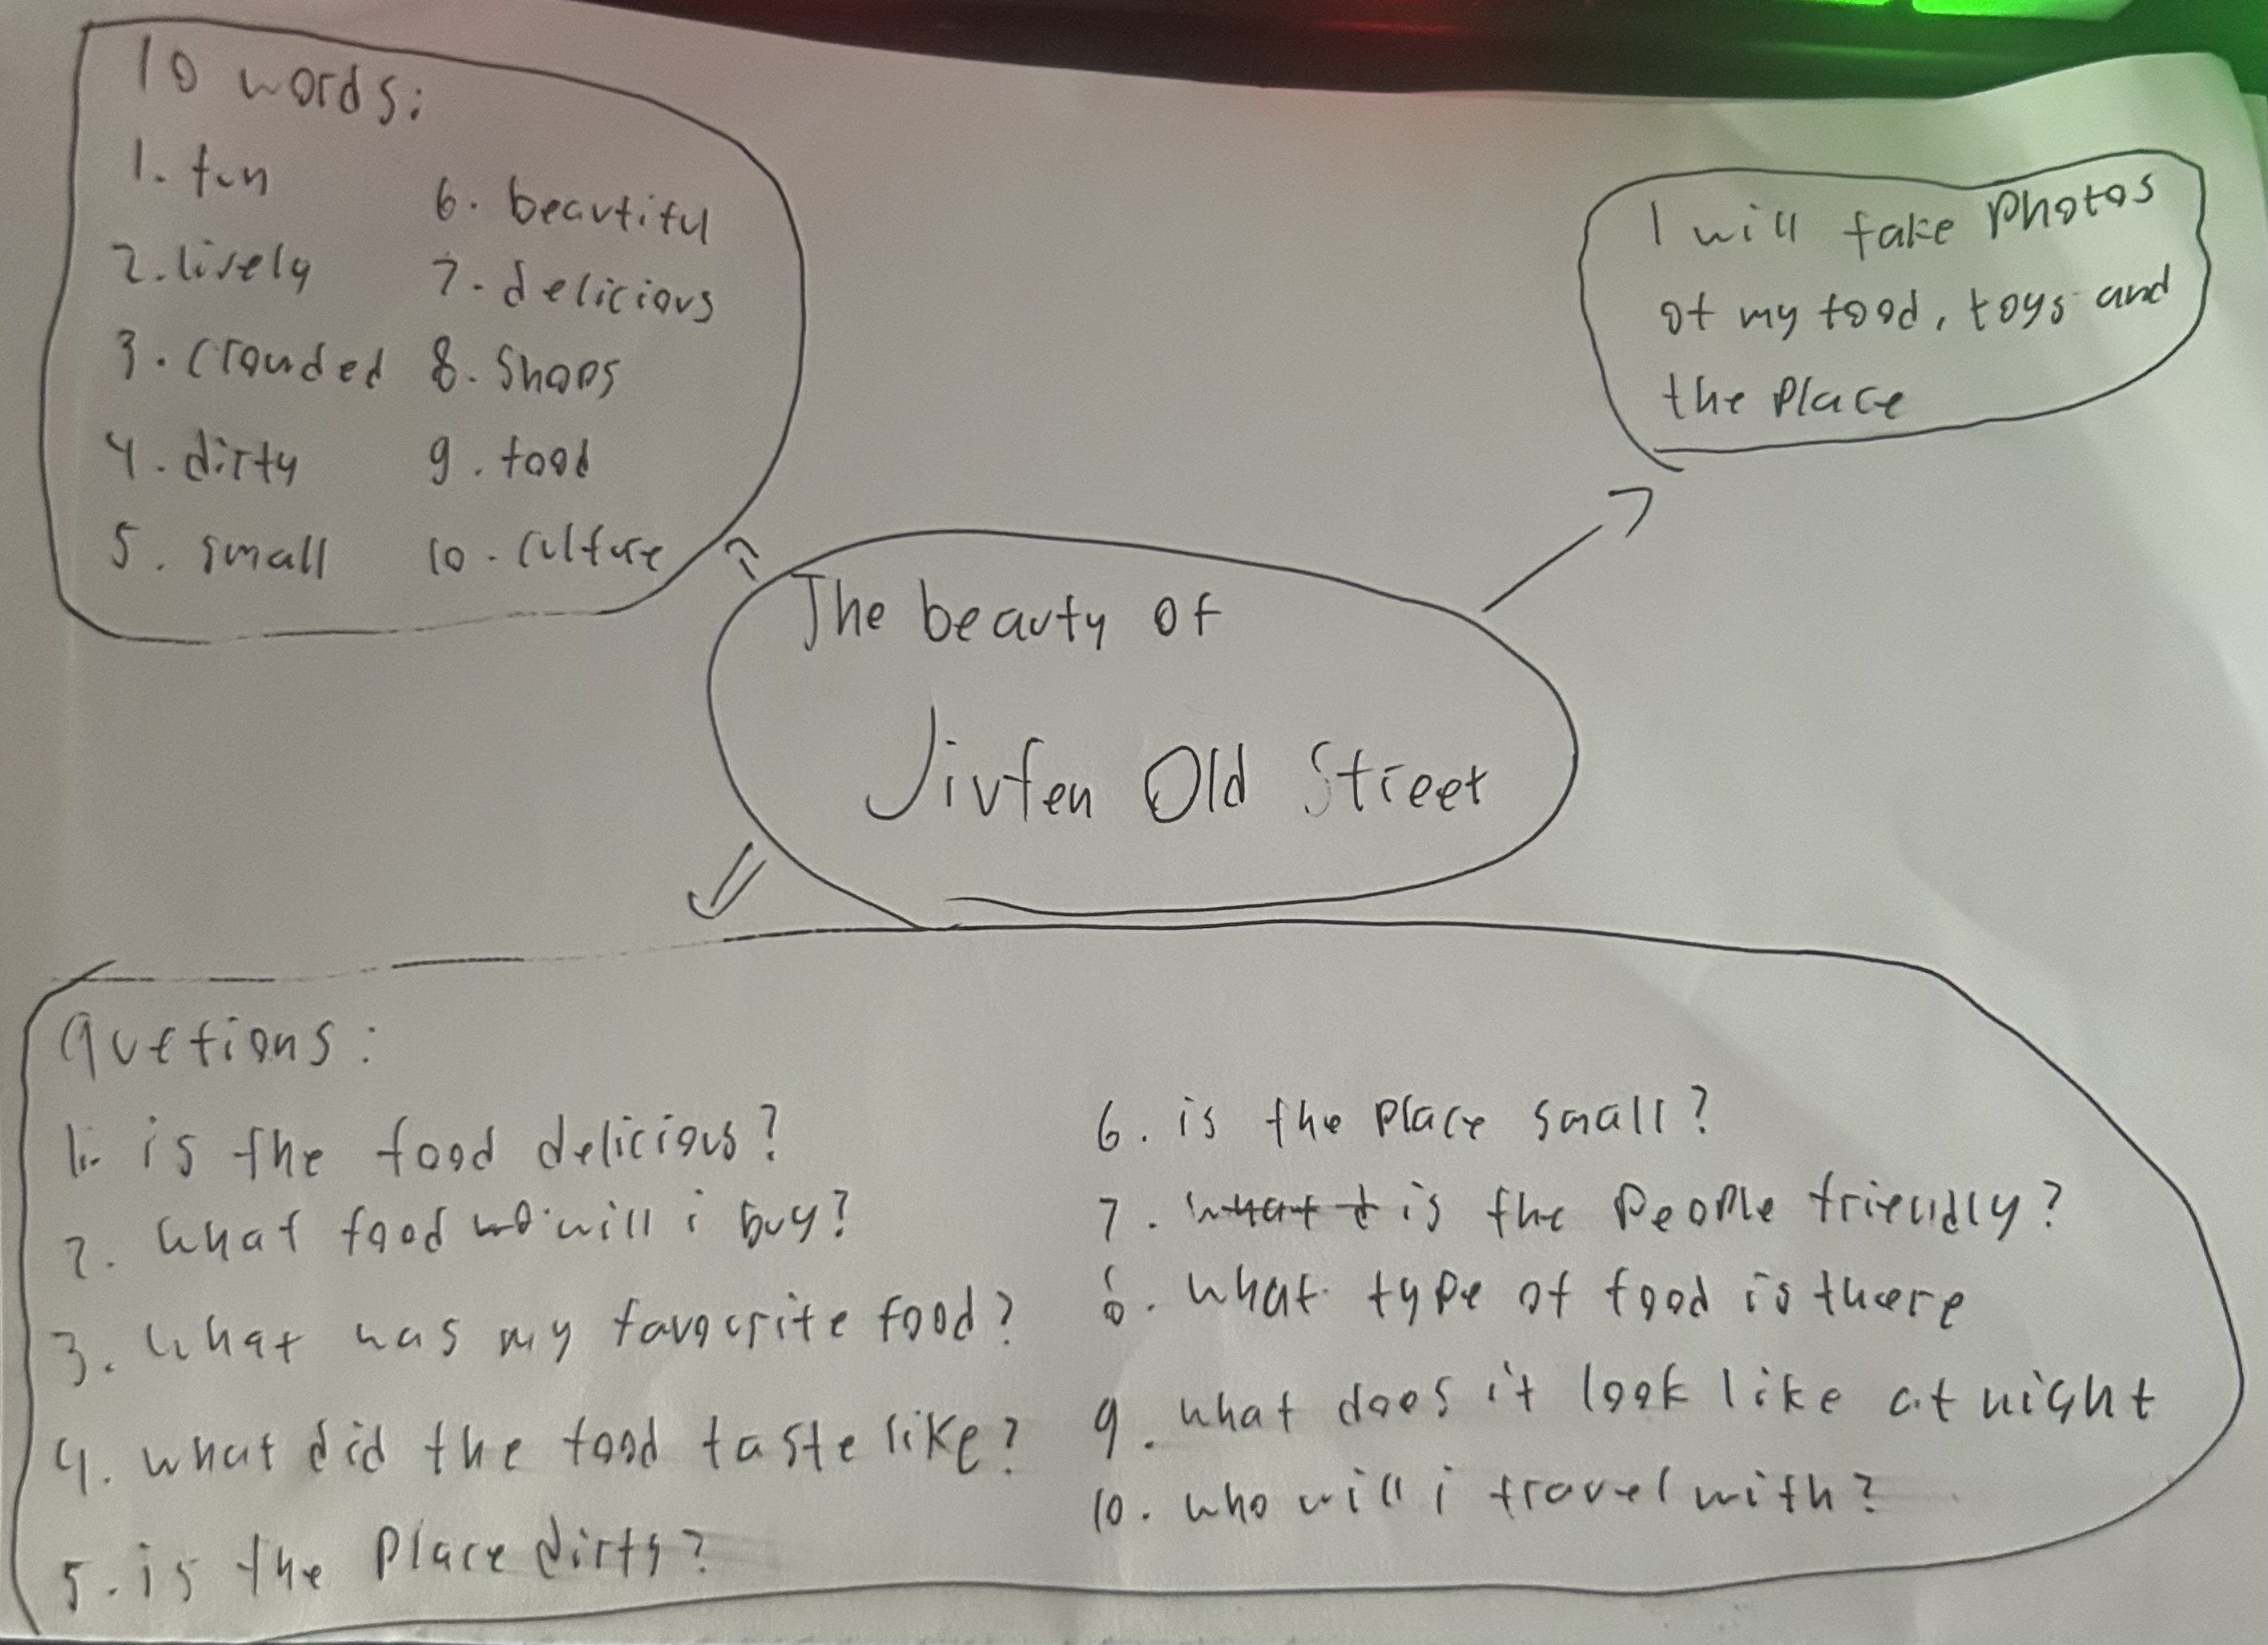 10 words:
1. fun
2. lively
3. crouded
4. dirty
5. small
6. beautiful
7. delicious
8. Shops
9. food
10. culture
I will take photos
of my food, toys and
the place
The beauty of
Jiufen Old Street
Quetions:
1. is the food delicious?
2. What food will i buy?
3. What was my favocrite food?
4. what did the food taste like?
5. is the place dirty?
6. is the place small?
7. is the people friendly?
8. what type of food is there
9. what does it look like at night
10. who will i travel with?